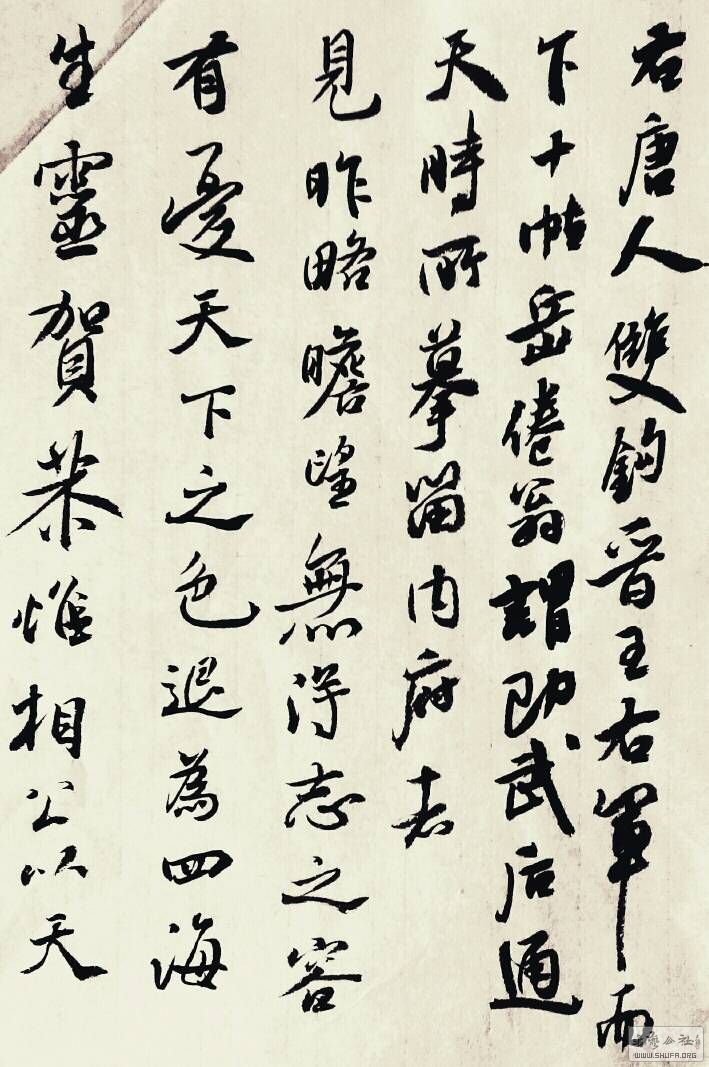 右唐人雙鉤晉王右軍而
下十帖岳倦翁謂即武后通
天時所摹留內府者
見昨略瞻望無得志之容
有憂天下之色退為四海
生靈賀恭惟相公以天
WWW.SHUFA.ORG